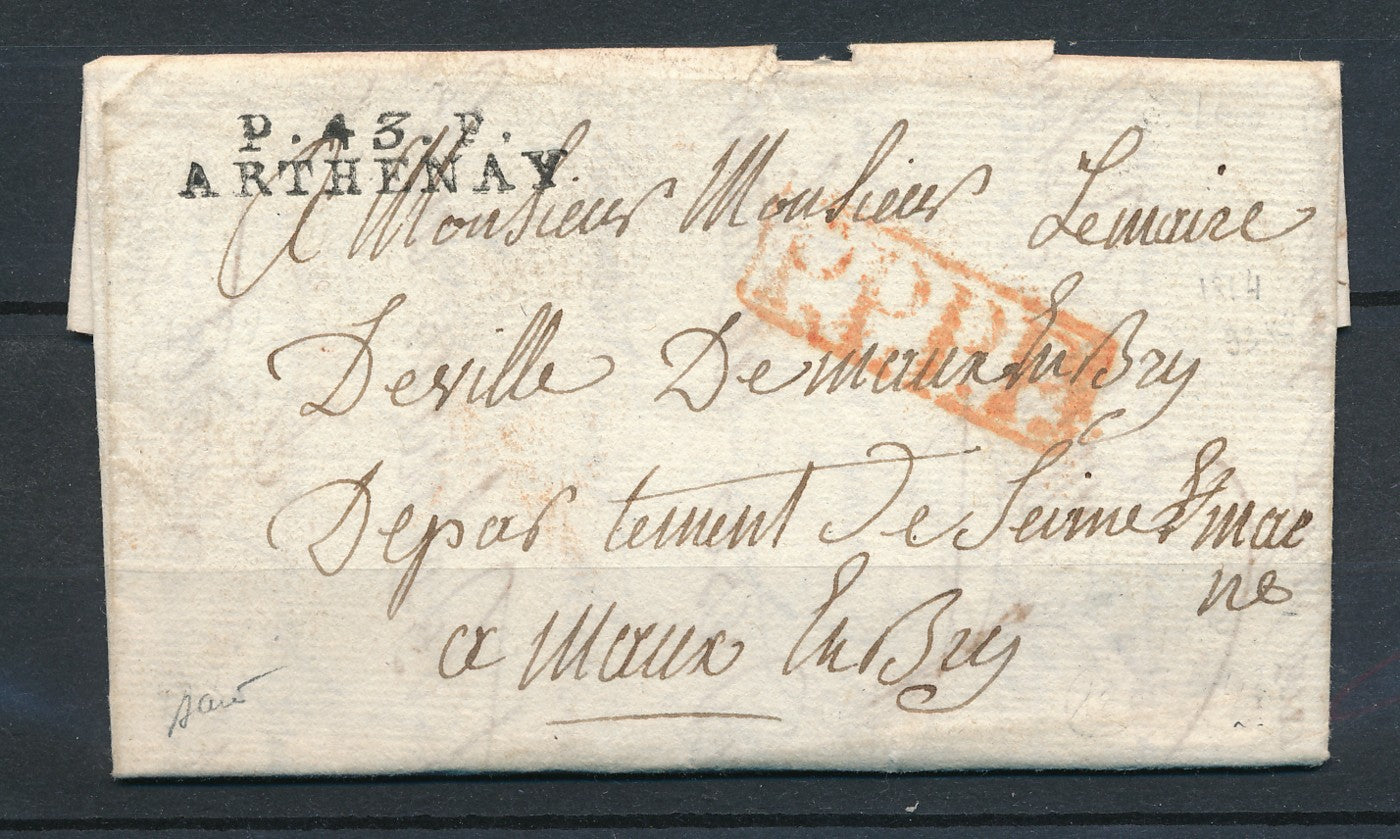 P. 43. P.
ARTHENAY
A Monsieur Monsieur Lemaire
P.P.P.P.
Deville De maux En Bry
Depar tement De Seinne & mar
ne
a Maux En Bry